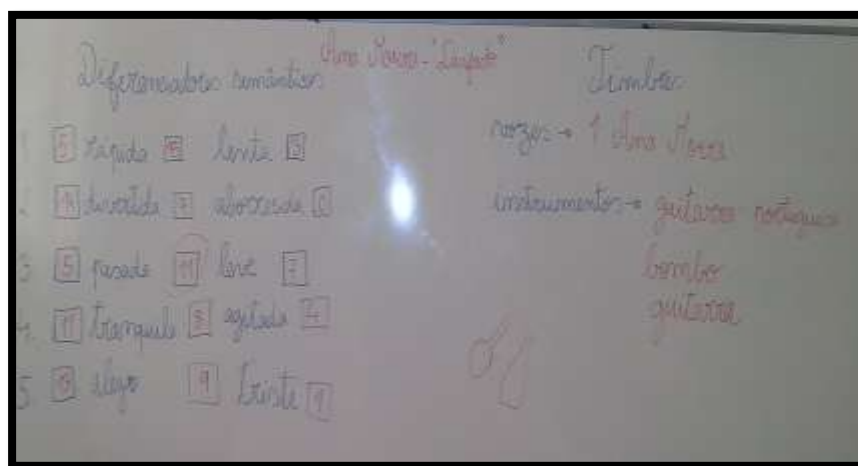 Diferenciadores semânticos
Ana Moura - "Desfado"
Timbre
1 5 rápida 15 lenta 3
2 14 divertida 7 aborrecida 0
3 5 pesada 11 leve 7
4 11 tranquila 8 agitada 4
5 13 alegre 9 triste 1
vozes → 1 Ana Moura
instrumentos → guitarra portuguesa
bombo
guitarra